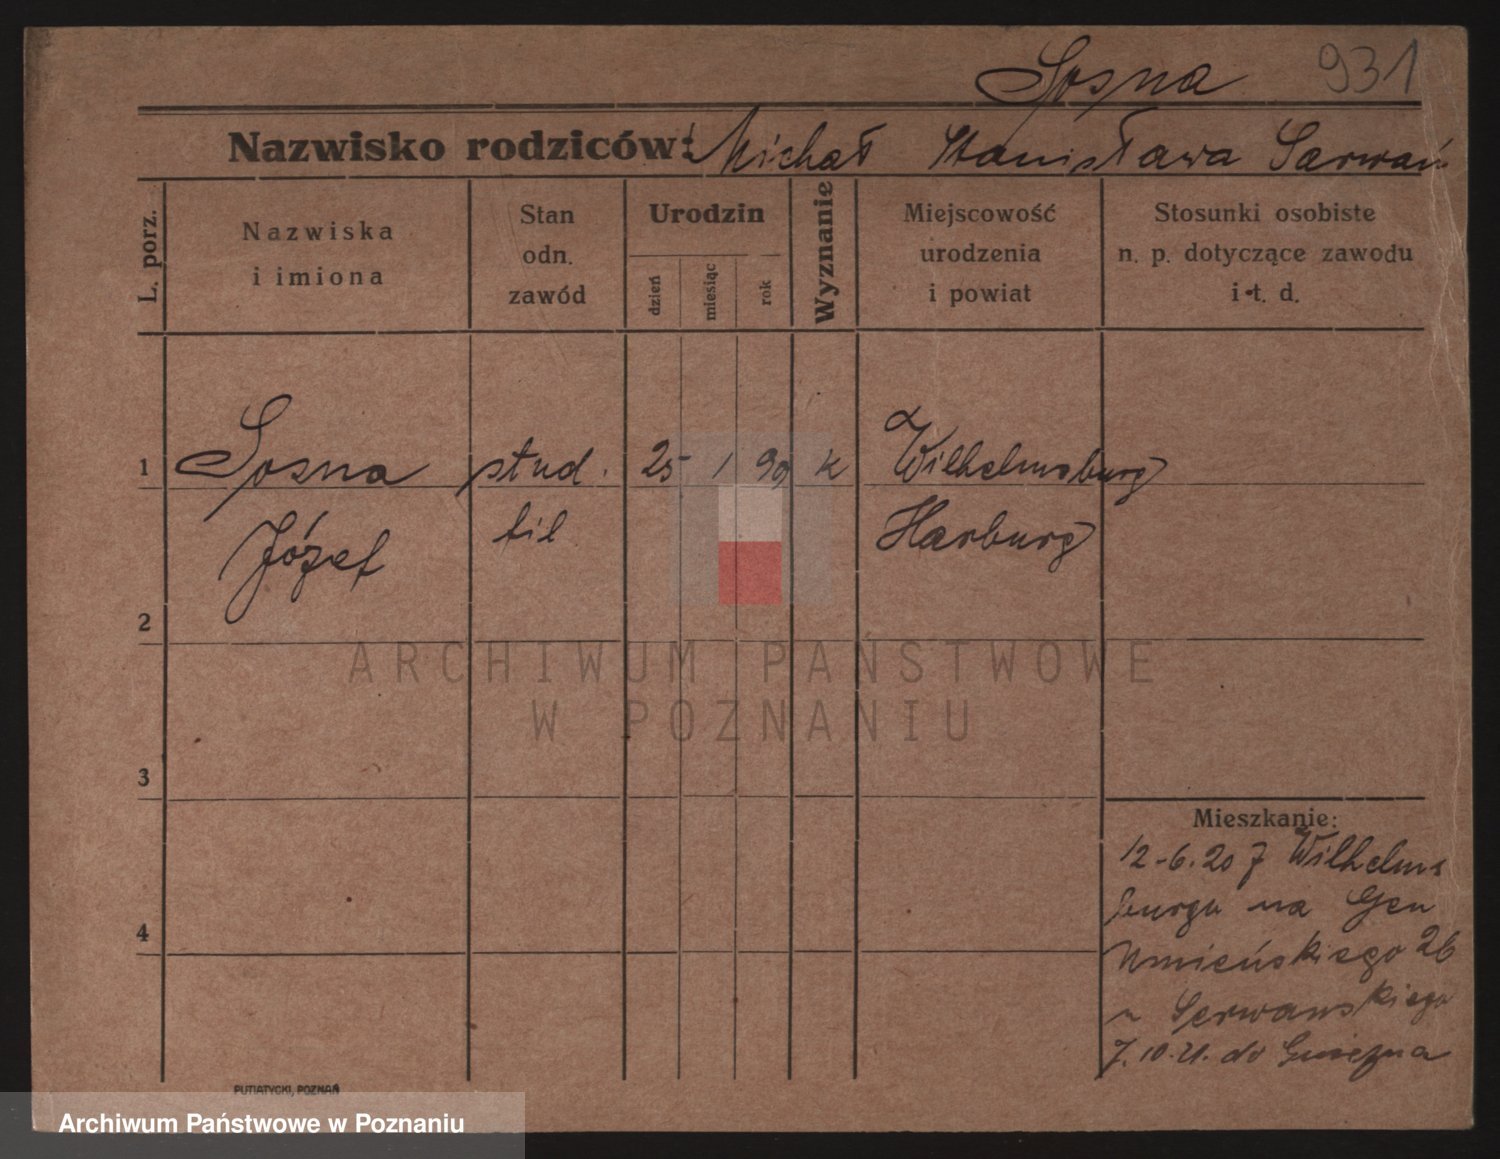 Sosna 931
Nazwisko rodziców: Michał Stanisława Serwań
L. porz.
Nazwiska
i imiona
Stan
odn.
zawód
Urodzin
dzień
miesiąc
rok
Wyznanie
Miejscowość
urodzenia
i powiat
Stosunki osobiste
n. p. dotyczące zawodu
i t. d.
1 Sosna stud. 25 1 99 k Wilhelmsburg
Józef fil Harburg
2
3
4
Mieszkanie:
12-6.20 z Wilhelms
burgu na Gen
Umieńskiego 26
u Serwańskiego
7.10.21. do Gniezna
PUTIATYCKI, POZNAŃ
ARCHIWUM PAŃSTWOWE
W POZNANIU
Archiwum Państwowe w Poznaniu